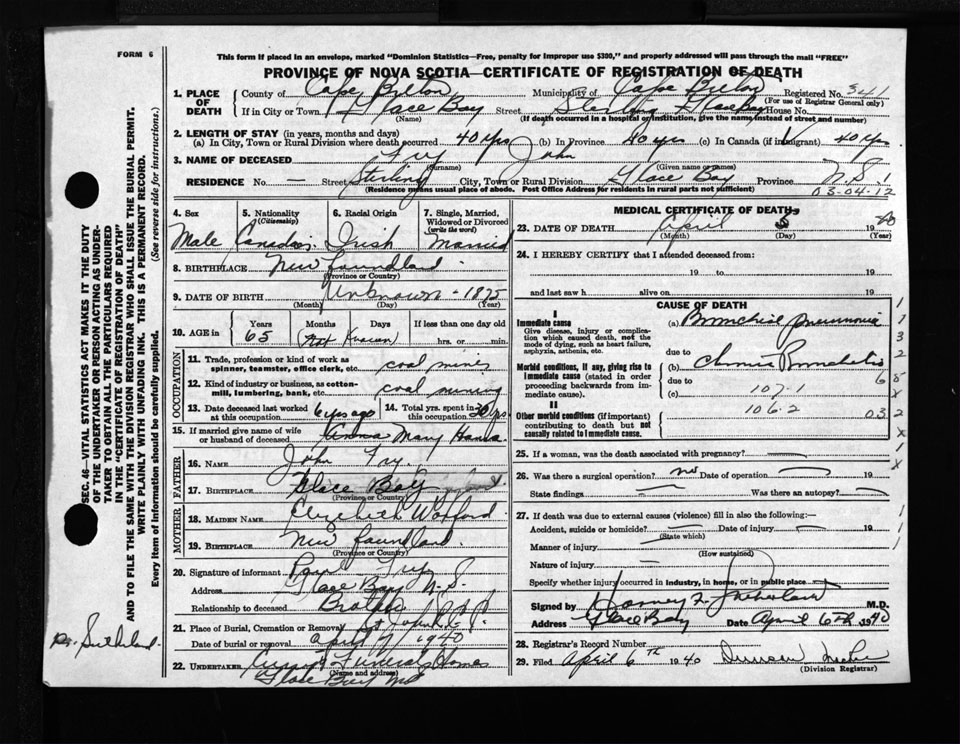 FORM 6
This form if placed in an envelope, marked "Dominion Statistics—Free, penalty for improper use $300," and properly addressed will pass through the mail "FREE"
PROVINCE OF NOVA SCOTIA—CERTIFICATE OF REGISTRATION OF DEATH
1. PLACE OF DEATH County of Cape Breton Municipality of Cape Breton Registered No. 341
(For use of Registrar General only)
If in City or Town Glace Bay Street Sterling Glace Bay House No.
(Name) (If death occurred in a hospital or institution, give the name instead of street and number)
2. LENGTH OF STAY (in years, months and days)
(a) In City, Town or Rural Division where death occurred 40 yrs (b) In Province 40 yrs (c) In Canada (if immigrant) 40 yrs
3. NAME OF DECEASED John
(Surname) (Given name or names)
RESIDENCE No. — Street Sterling City, Town or Rural Division Glace Bay Province N.S.
(Residence means usual place of abode. Post Office Address for residents in rural parts not sufficient) 03-04-12
4. Sex Male
5. Nationality (Citizenship)
6. Racial Origin Irish
7. Single, Married, Widowed or Divorced (write the word) Married
8. BIRTHPLACE New Foundland
(Province or Country)
9. DATE OF BIRTH Unknown - 1875
(Month) (Day) (Year)
10. AGE in Years 65 Months Not Days Known If less than one day old hrs. or min.
OCCUPATION
11. Trade, profession or kind of work as spinner, teamster, office clerk, etc. coal miner
12. Kind of industry or business, as cotton-mill, lumbering, bank, etc. coal mining
13. Date deceased last worked at this occupation 6 yrs ago 14. Total yrs. spent in this occupation 30 yrs
15. If married give name of wife or husband of deceased Mary
FATHER
16. NAME John
17. BIRTHPLACE Glace Bay
(Province or Country)
MOTHER
18. MAIDEN NAME Elizabeth
19. BIRTHPLACE New Foundland
(Province or Country)
20. Signature of informant
Address Glace Bay N.S.
Relationship to deceased Brother
21. Place of Burial, Cremation or Removal
Date of burial or removal April 7 1940
22. UNDERTAKER Funeral Homes
(Name and address)
Glace Bay
MEDICAL CERTIFICATE OF DEATH
23. DATE OF DEATH April 5 1940
(Month) (Day) (Year)
24. I HEREBY CERTIFY that I attended deceased from:
19 to 19
and last saw h alive on 19
CAUSE OF DEATH
I
Immediate cause
Give disease, injury or complication which caused death, not the mode of dying, such as heart failure, asphyxia, asthenia, etc.
(a) Bronchial pneumonia
due to
Morbid conditions, if any, giving rise to immediate cause (stated in order proceeding backwards from immediate cause).
(b) Chronic Bronchitis
due to
(c) 107-1
II
106-2
Other morbid conditions (if important) contributing to death but not causally related to immediate cause.
25. If a woman, was the death associated with pregnancy?
26. Was there a surgical operation? no Date of operation 19
State findings Was there an autopsy?
27. If death was due to external causes (violence) fill in also the following:—
Accident, suicide or homicide? Date of injury 19
(State which)
Manner of injury
(How sustained)
Nature of injury
Specify whether injury occurred in industry, in home, or in public place
Signed by Harvey F. Sutherland M.D.
Address Glace Bay Date April 6th 1940
28. Registrar's Record Number
29. Filed April 6th 1940 Duncan
(Division Registrar)
SEC. 46—VITAL STATISTICS ACT MAKES IT THE DUTY
OF THE UNDERTAKER OR PERSON ACTING AS UNDERTAKER TO OBTAIN ALL THE PARTICULARS REQUIRED
IN THE "CERTIFICATE OF REGISTRATION OF DEATH"
AND TO FILE THE SAME WITH THE DIVISION REGISTRAR WHO SHALL ISSUE THE BURIAL PERMIT.
WRITE PLAINLY WITH UNFADING INK. THIS IS A PERMANENT RECORD.
Every item of information should be carefully supplied. (See reverse side for instructions.)
Dr. Sutherland